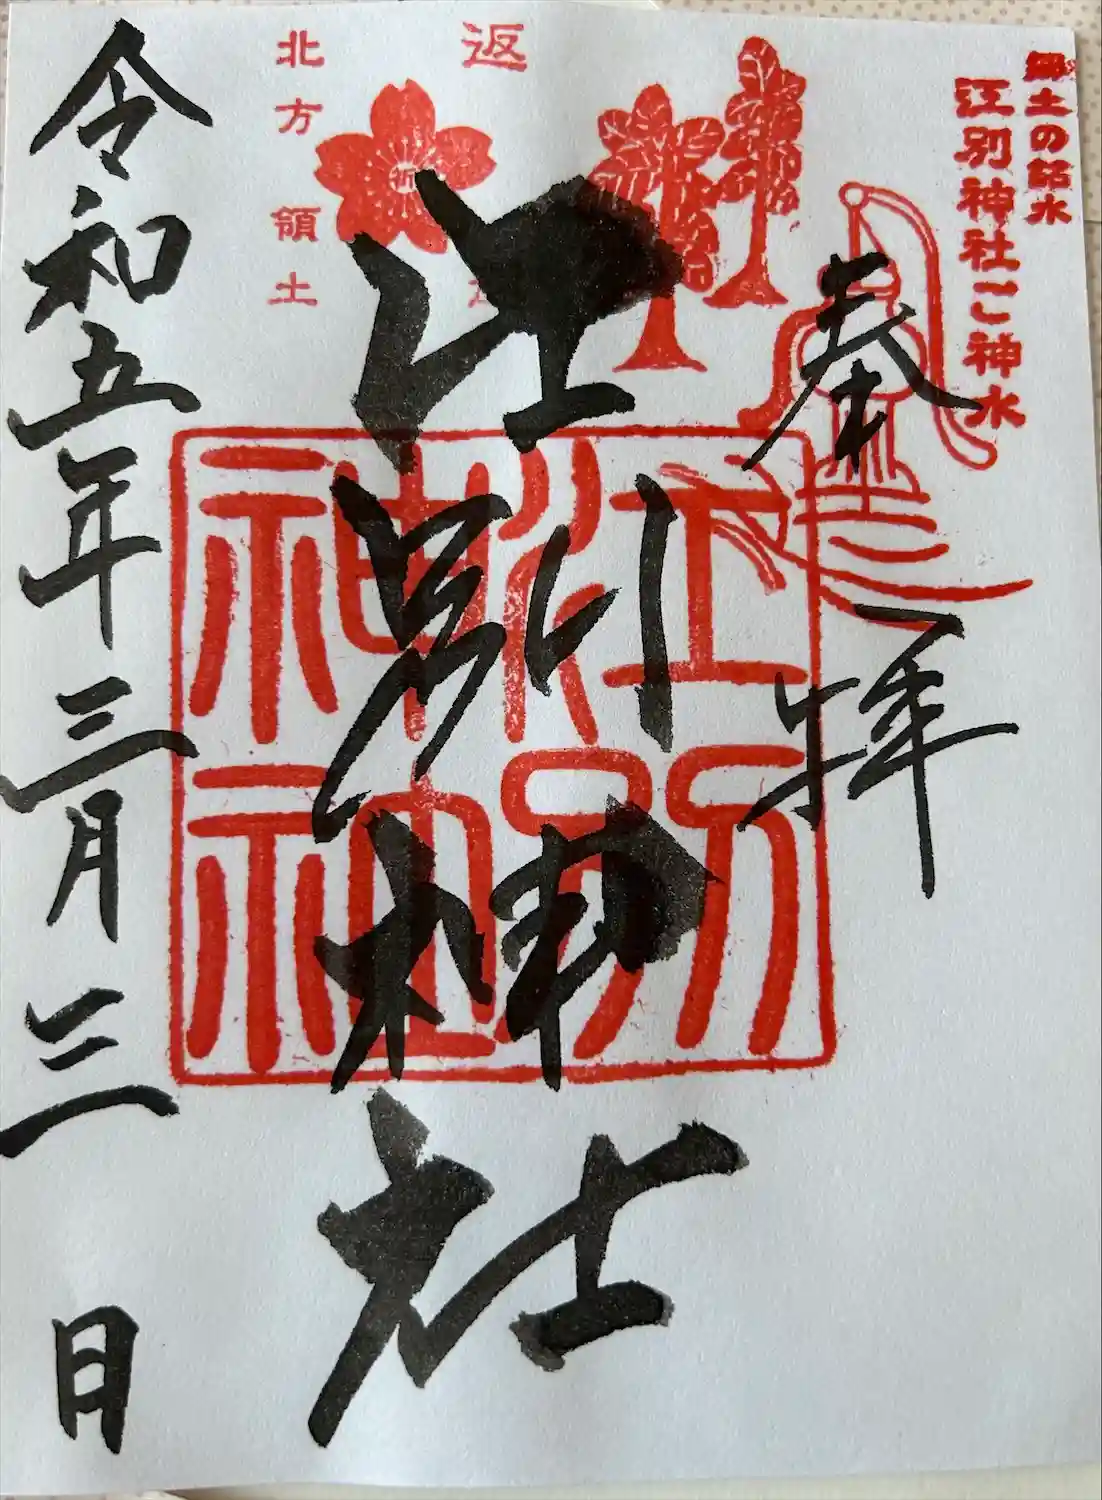 郷土の銘水
江別神社ご神水
奉拝
返
北方領土
祈
江別神社
江別神社
令和五年三月三日